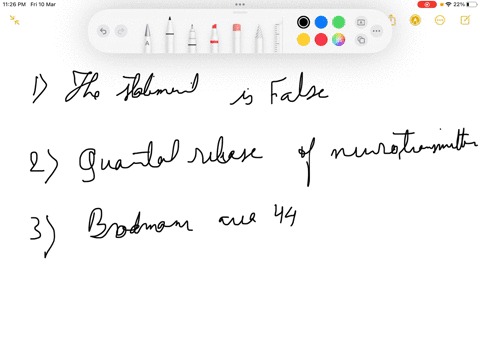 11:26 PM Fri 10 Mar 22%
1) The statement is False
2) Quantal release of neurotransmitter
3) Brodmann area 44